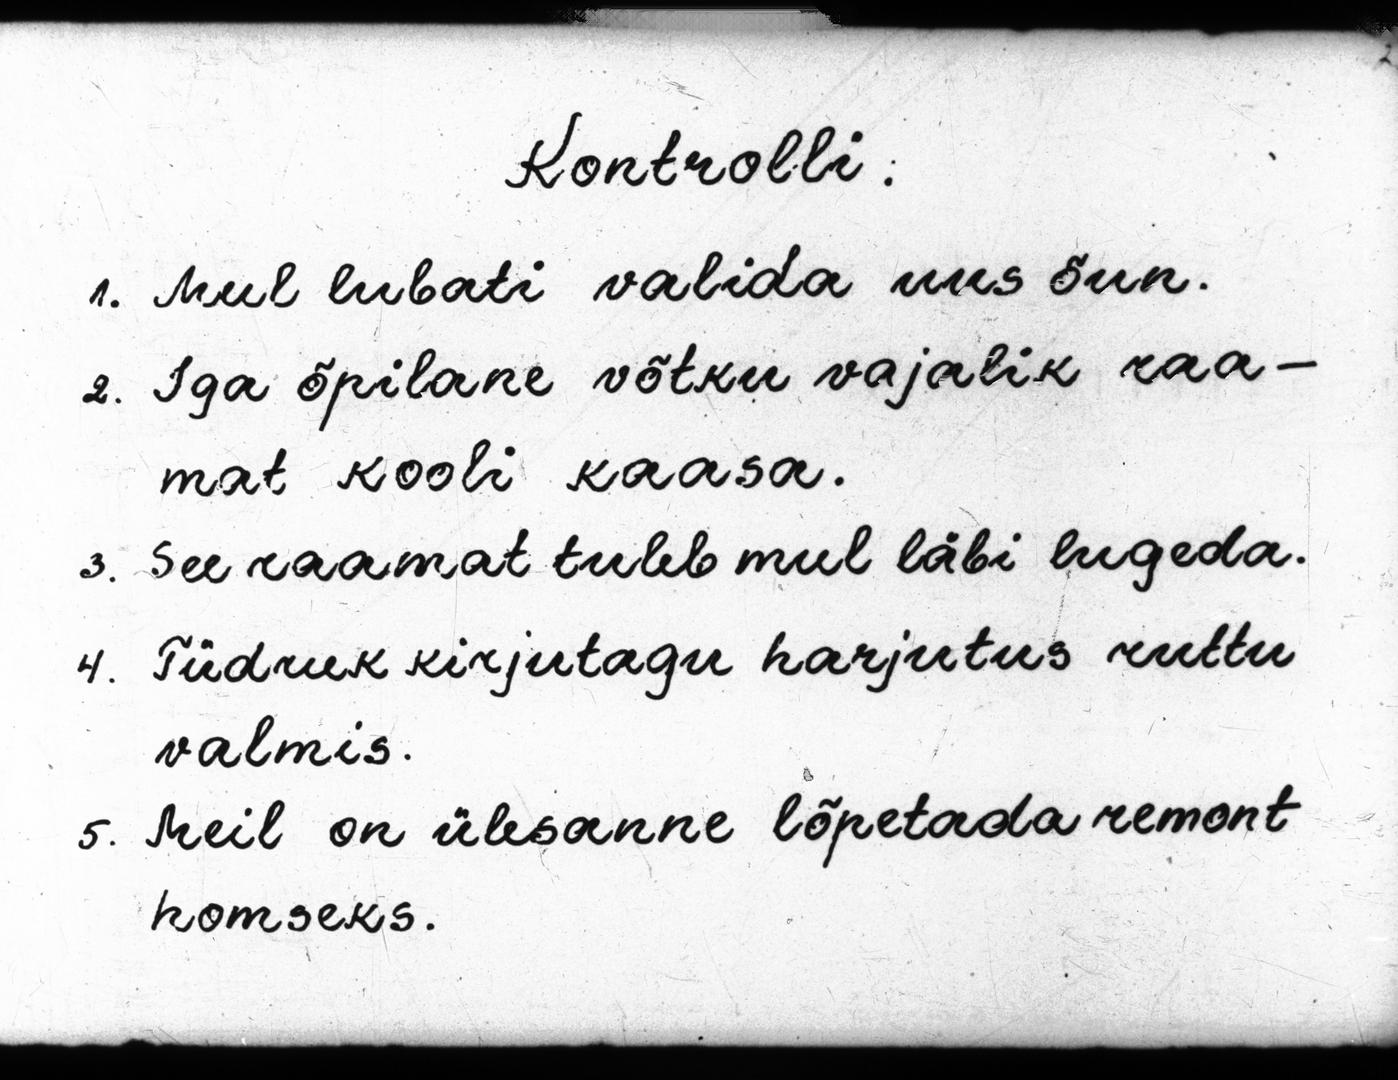 Kontrolli:
1. Mul lubati valida uus õun.
2. Iga õpilane võtku vajalik raa-
mat kooli kaasa.
3. See raamat tuleb mul läbi lugeda.
4. Tüdruk kirjutagu harjutus ruttu
valmis.
5. Meil on ülesanne lõpetada remont
homseks.